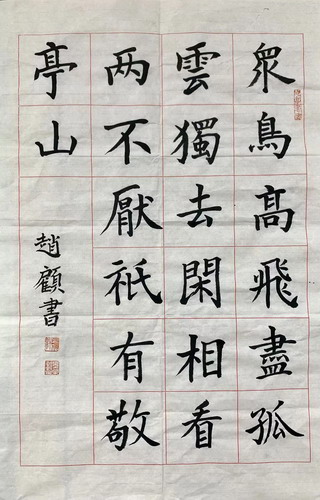 衆鳥高飛盡孤
雲獨去閑相看
两不厭衹有敬
亭山
趙顧書